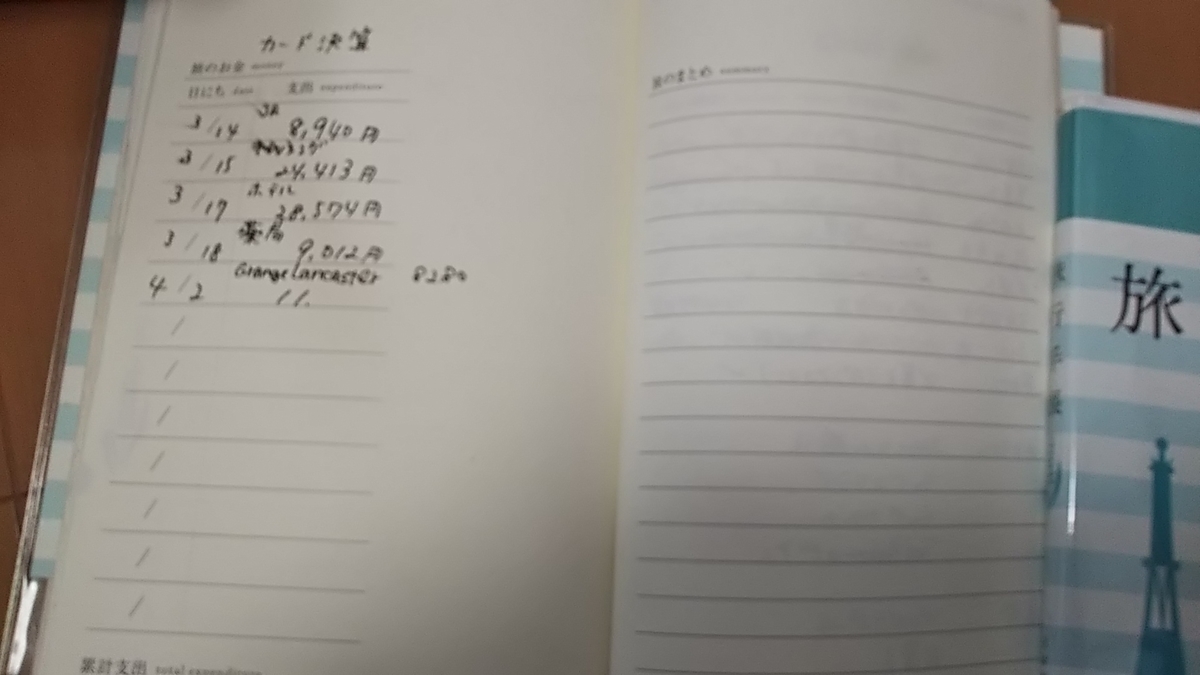 カード決算
旅のお金 money
日にち date 支出 expenditure
JR
3/14 8,940円
3/15 24,413円
ホテル
3/17 28,574円
薬局
3/18 9,012円
Grange Lancaster 8280
4/2 11.
/
/
/
/
/
/
/
累計支出 total expenditure
旅のまとめ summary
旅
旅行手帳